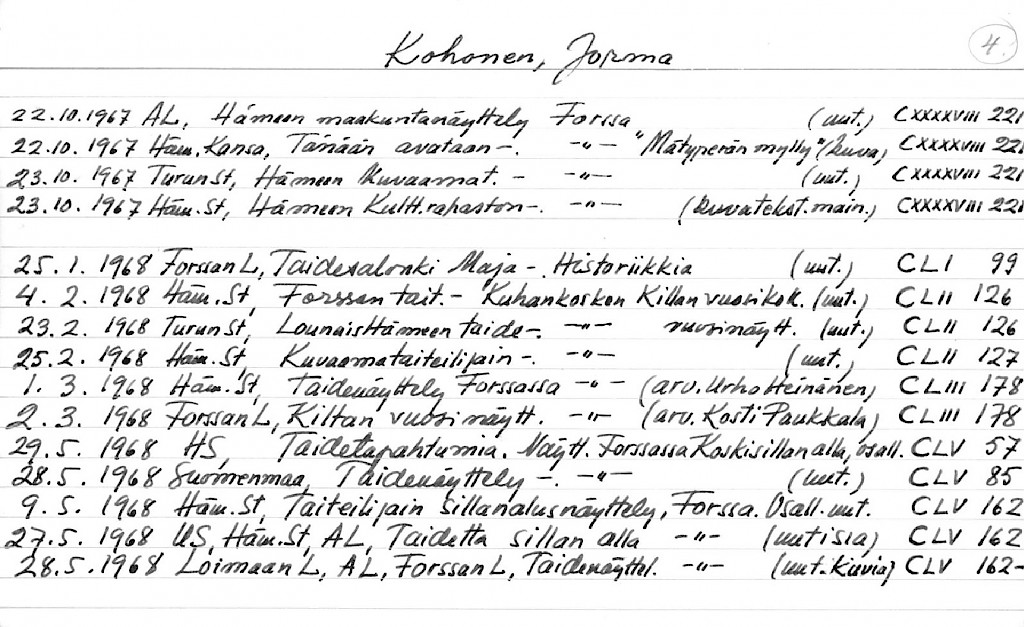 4.
Kohonen, Jorma
22.10.1967 AL, Hämeen maakuntanäyttely Forssa (uut.) CXXXXVIII 221
22.10.1967 Häm. Kansa, Tänään avataan-. -"- "Mätyperän mylly" (kuva) CXXXXVIII 221
23.10.1967 Turun St, Hämeen kuvaamat. - -"- (uut.) CXXXXVIII 221
23.10.1967 Häm. St, Hämeen Kultt.rahaston-. -"- (kuvatekst.main.) CXXXXVIII 221
25.1.1968 Forssan L, Taidesalonki Maja-. Historiikkia (uut.) CLI 99
4.2.1968 Häm. St, Forssan tait.- Kuhankosken Killan vuosikok. (uut.) CLII 126
23.2.1968 Turun St, LounaisHämeen taide-. -"- vuosinäytt. (uut.) CLII 126
25.2.1968 Häm. St, Kuvaamataiteilijain-. -"- (uut.) CLII 127
1.3.1968 Häm. St, Taidenäyttely Forssassa -"- (arv. Urho Heinänen) CLIII 178
2.3.1968 Forssan L, Killan vuosinäytt. -"- (arv. Kosti Paukkala) CLIII 178
29.5.1968 HS, Taidetapahtumia. Näytt. Forssassa Koskisillan alla, osall. CLV 57
28.5.1968 Suomenmaa, Taidenäyttely-. -"- (uut.) CLV 85
9.5.1968 Häm. St, Taiteilijain sillanalusnäyttely, Forssa. Osall. uut. CLV 162
27.5.1968 US, Häm. St, AL, Taidetta sillan alla -"- (uutisia) CLV 162
28.5.1968 Loimaan L, AL, Forssan L, Taidenäyttel. -"- (uut. kuvia) CLV 162-